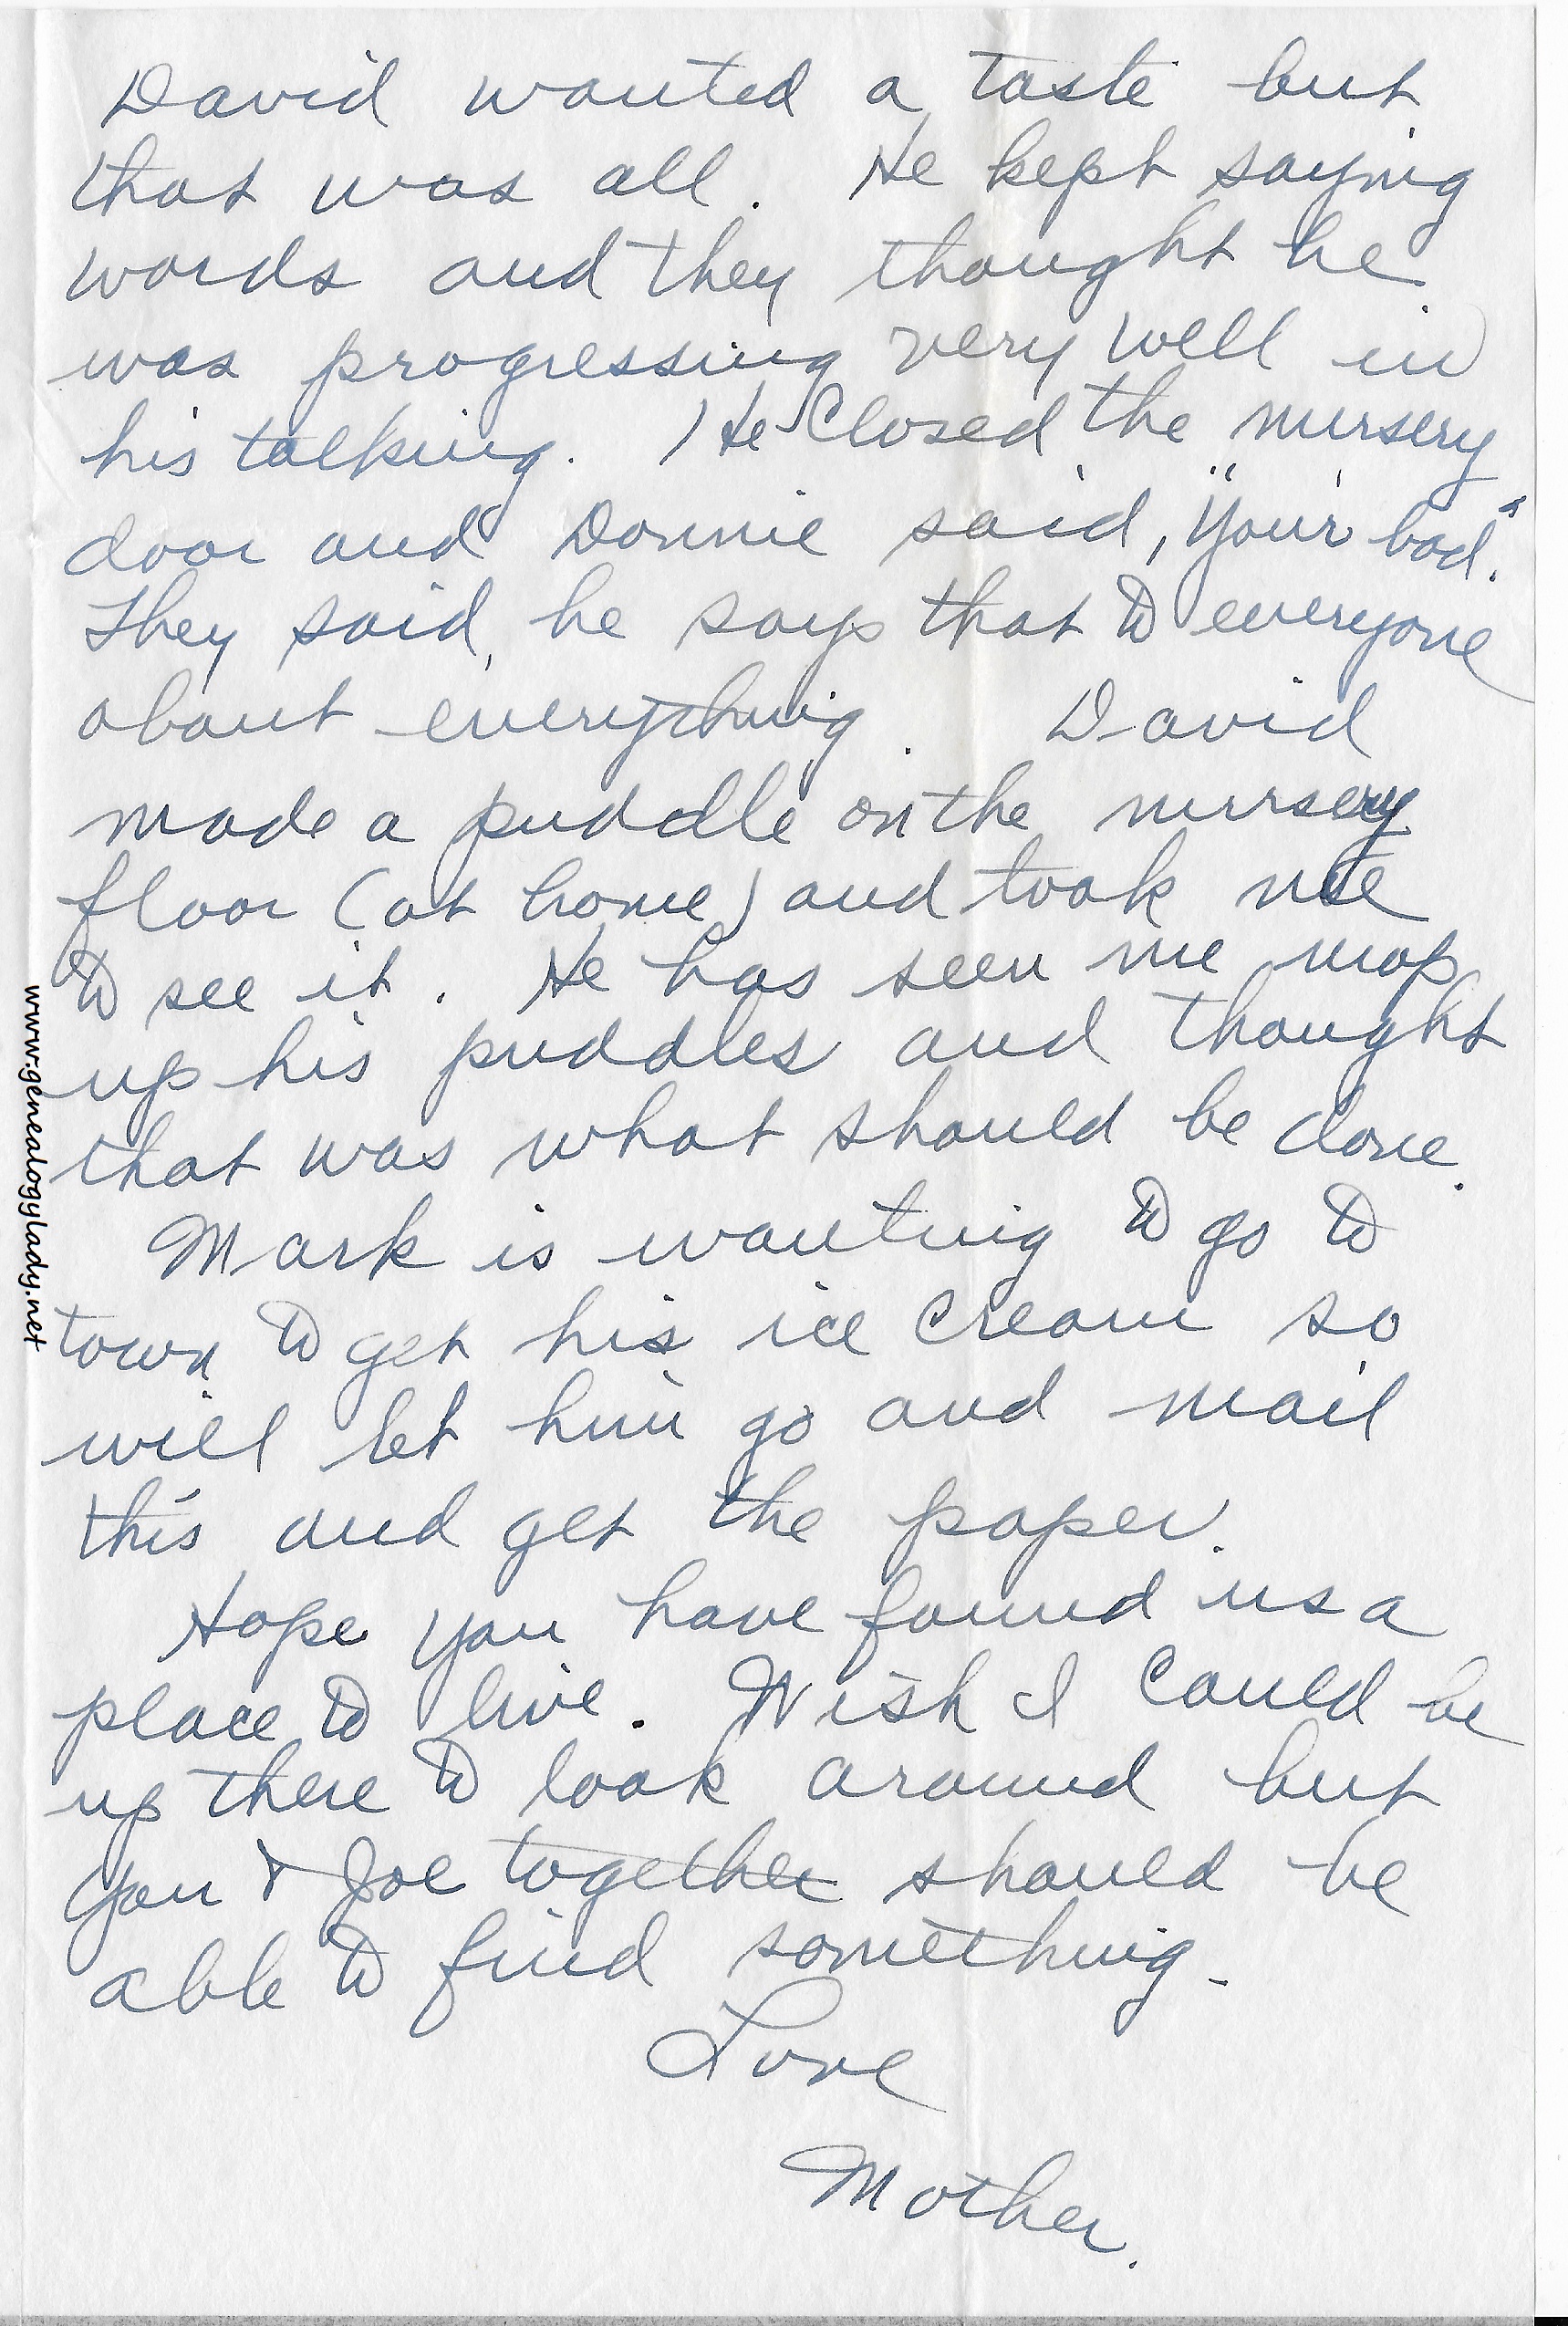 David wanted a taste but
that was all. He kept saying
words and they thought he
was progressing very well in
his talking. He closed the nursery
door and Donnie said, "Your bad."
They said, he says that to everyone
about everything. David
made a puddle on the nursery
floor (at home) and took me
to see it. He has seen me mop
up his puddles and thought
that was what should be done.
Mark is wanting to go to
town to get his ice cream so
will let him go and mail
this and get the paper.
Hope you have found us a
place to live. Wish I could be
up there to look around but
you & Joe together should be
able to find something.
Love
Mother.
www.genealogylady.net